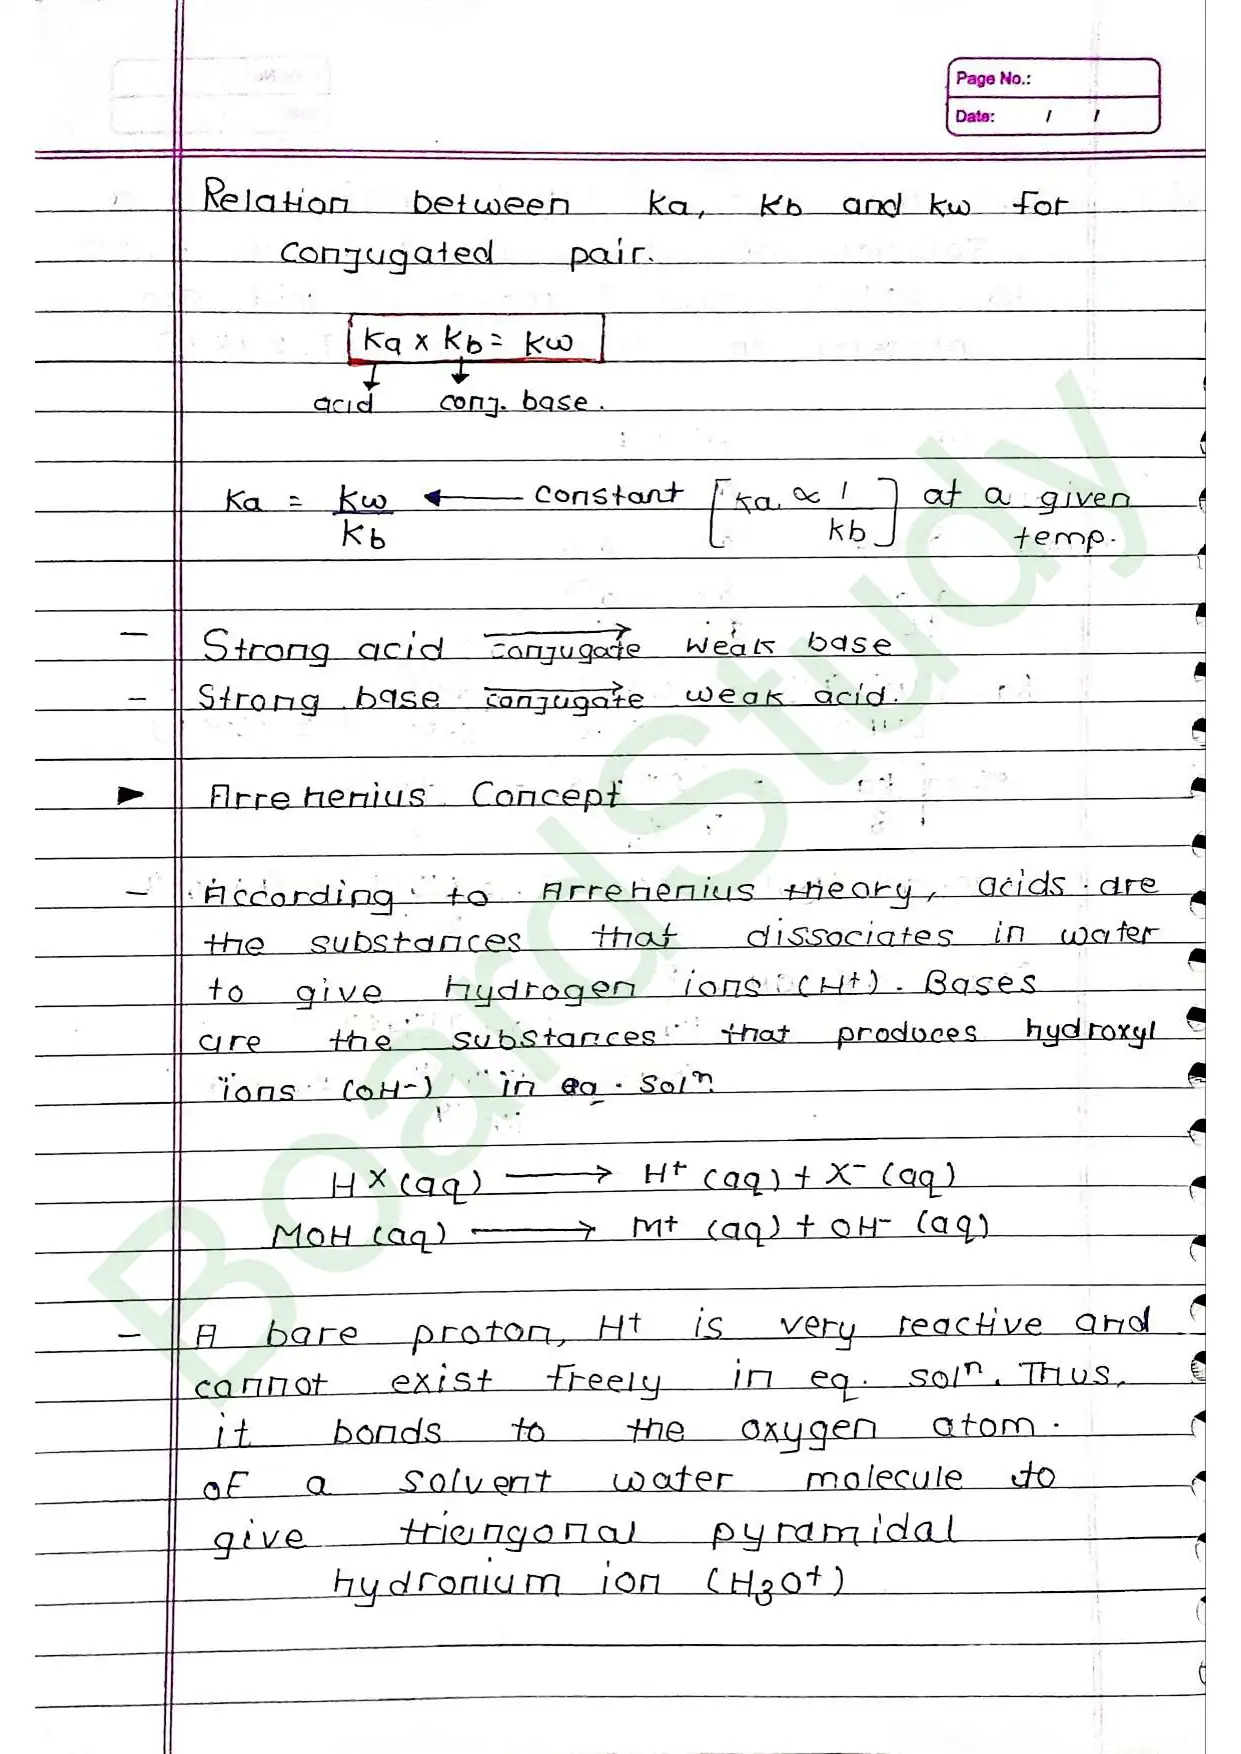 Page No.:
Date: / /
Relation between Ka, Kb and Kw for
conjugated pair.
Ka x Kb = Kw
acid conj. base.
Ka = Kw/Kb ← constant [Ka ∝ 1/Kb] at a given
temp.
- Strong acid conjugate→ weak base
- Strong base conjugate→ weak acid.
► Arrehenius Concept
- According to Arrehenius theory, acids are
the substances that dissociates in water
to give hydrogen ions (H+). Bases
are the substances that produces hydroxyl
ions (OH-) in eq. solⁿ
HX (aq) → H+ (aq) + X- (aq)
MOH (aq) → M+ (aq) + OH- (aq)
- A bare proton, H+ is very reactive and
cannot exist freely in eq. solⁿ. Thus,
it bonds to the oxygen atom.
of a solvent water molecule to
give triangonal pyramidal
hydronium ion (H3O+)
BoardStudy